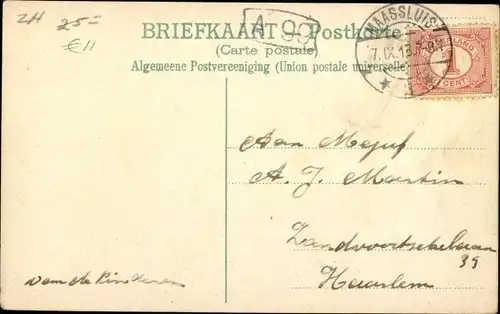 ZH 25=
€11
A 99
BRIEFKAART – Postkarte
(Carte postale)
Algemeene Postvereeniging (Union postale universelle)
MAASSLUIS
7.IX.13.
NEDERLAND
1
CENT
Aan Mejuf
A. J. Martin
Zandvoortschelaan
39
Haarlem
van de Kinderen